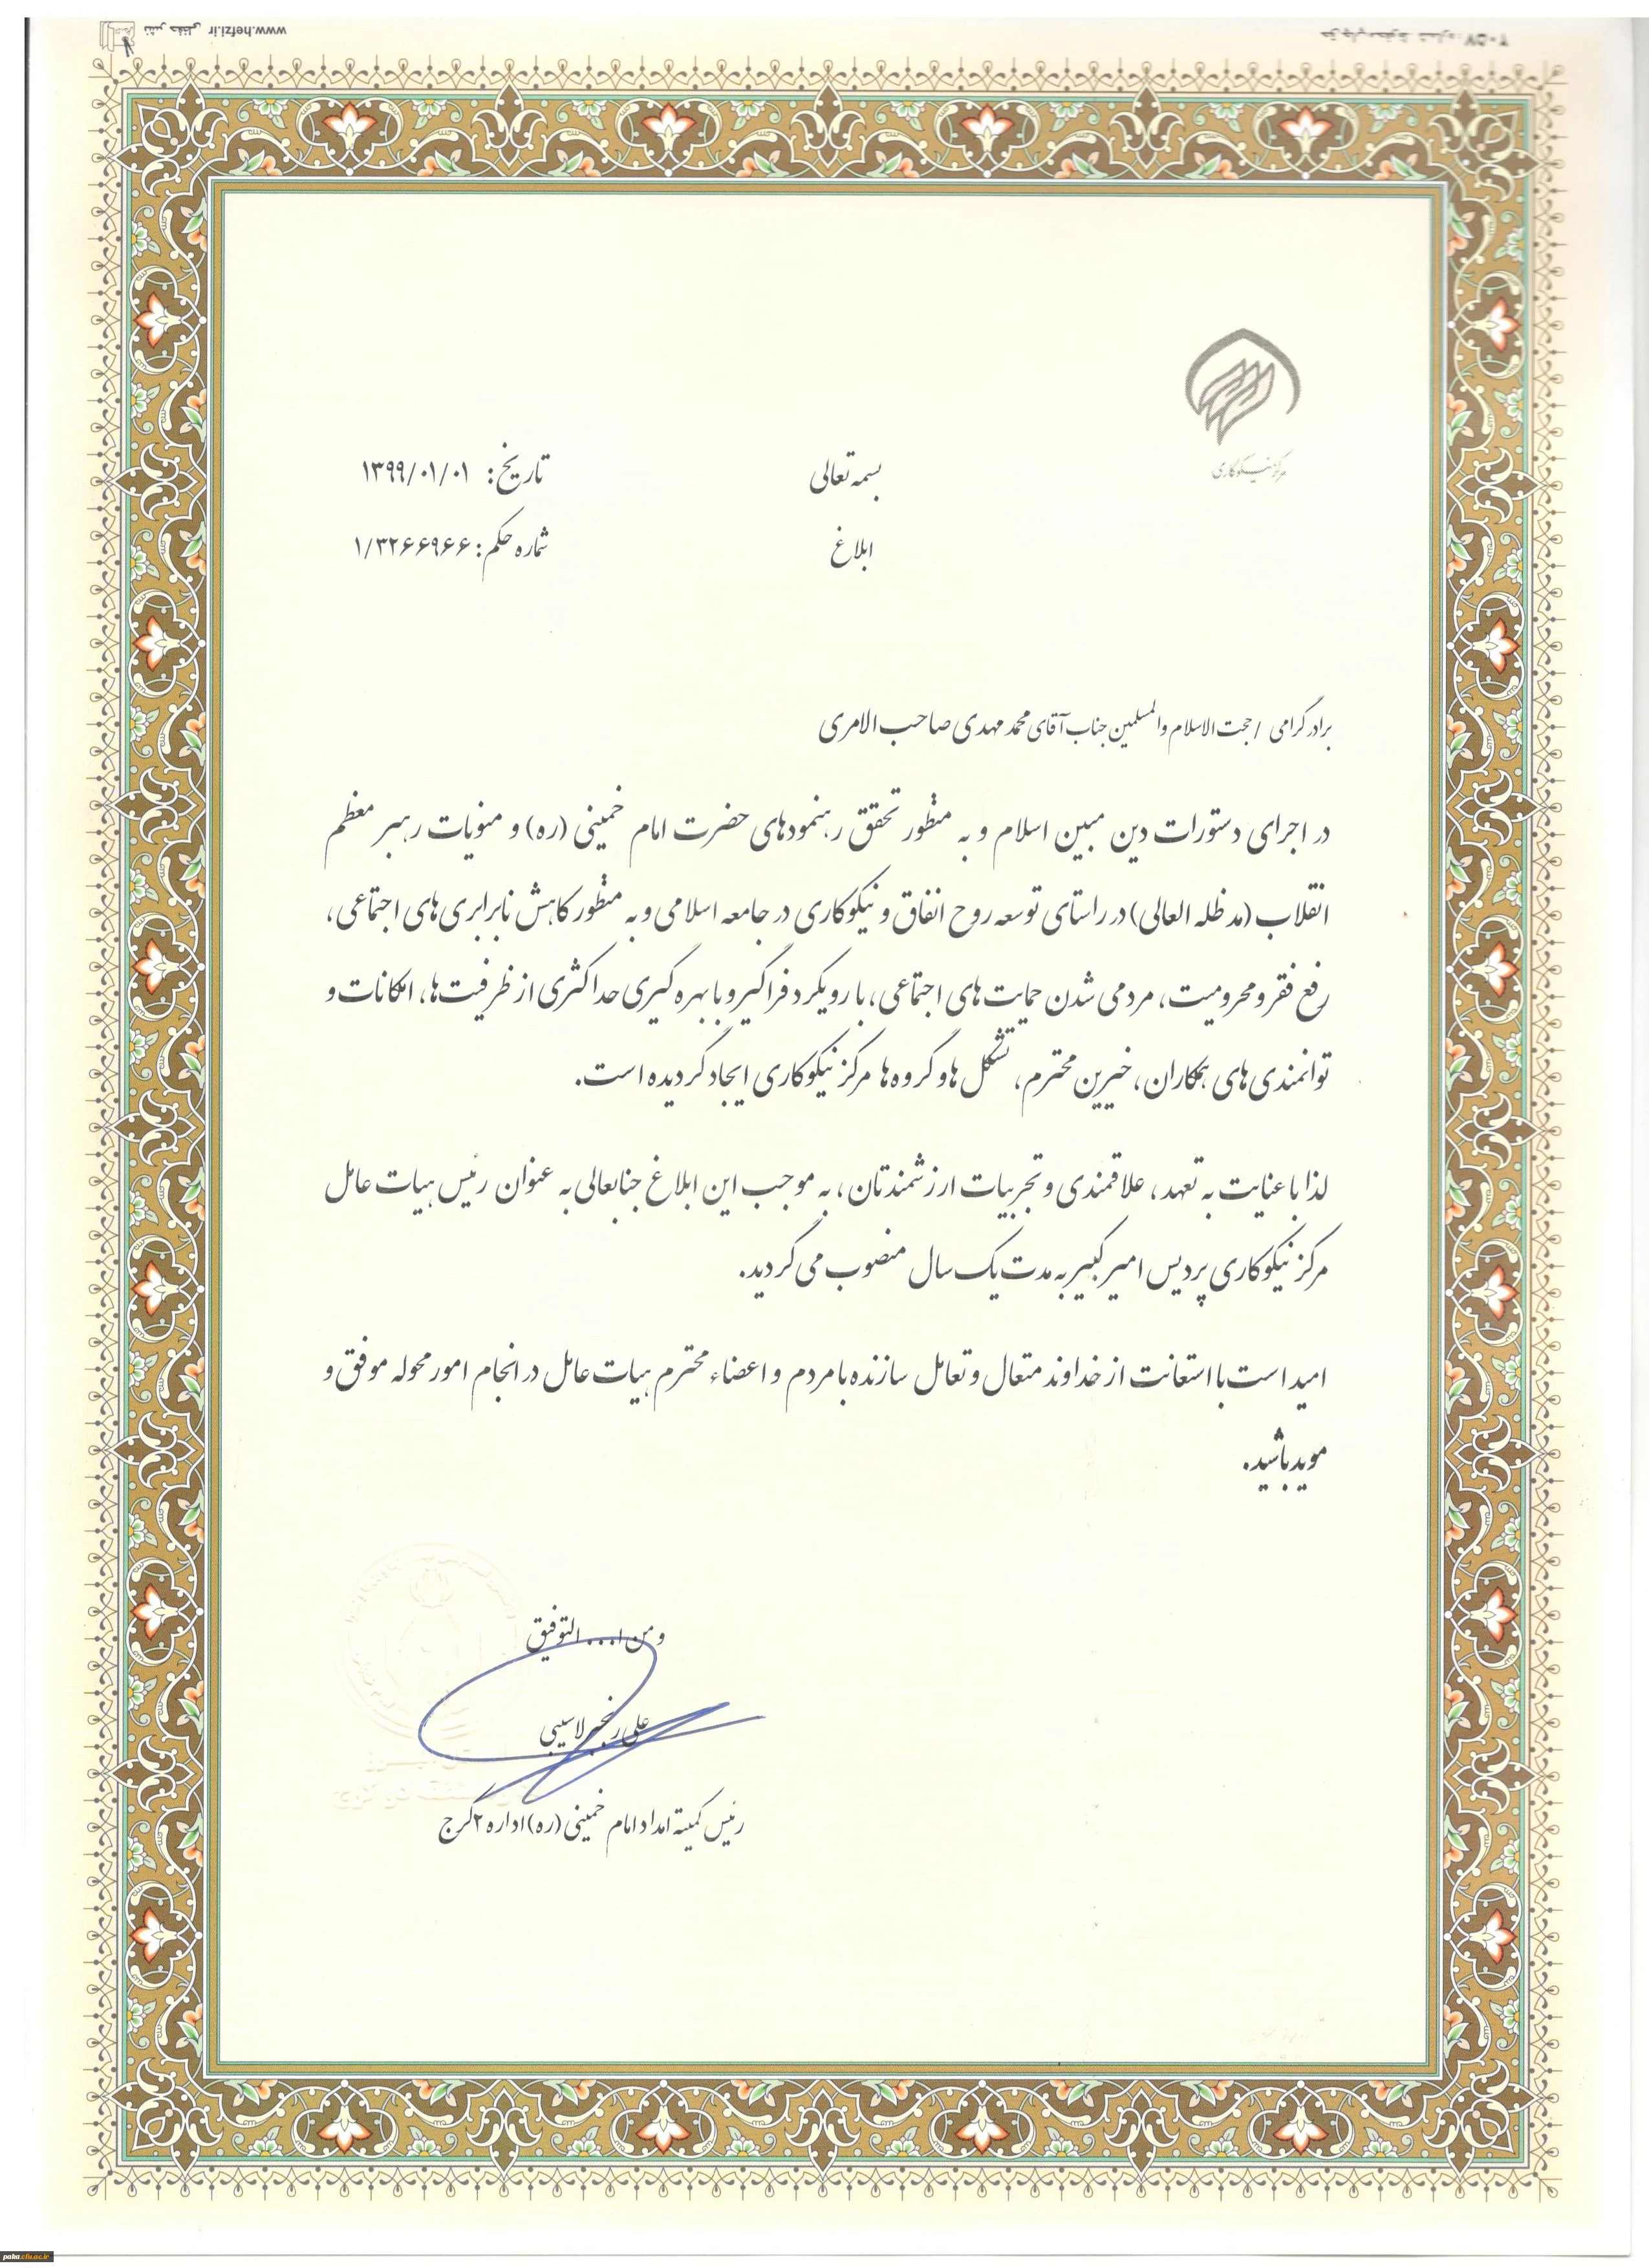 www.hefzi.ir نشر حفظی
مرکز نیکوکاری
بسمه تعالی
تاریخ: ۱۳۹۹/۰۱/۰۱
ابلاغ
شماره حکم: ۱/۳۲۶۶۹۶۶
برادر گرامی / حجت الاسلام والمسلمین جناب آقای محمد مهدی صاحب الامری
در اجرای دستورات دین مبین اسلام و به منظور تحقق رهنمودهای حضرت امام خمینی (ره) و منویات رهبر معظم
انقلاب (مد ظله العالی) در راستای توسعه روح انفاق و نیکوکاری در جامعه اسلامی و به منظور کاهش نابرابری های اجتماعی،
رفع فقر و محرومیت، مردمی شدن حمایت های اجتماعی، با رویکرد فراگیر و با بهره گیری حداکثری از ظرفیت ها، امکانات و
توانمندی های همکاران، خیرین محترم، تشکل ها و گروه ها مرکز نیکوکاری ایجاد گردیده است.
لذا با عنایت به تعهد، علاقمندی و تجربیات ارزشمندتان، به موجب این ابلاغ جنابعالی به عنوان رئیس هیات عامل
مرکز نیکوکاری پردیس امیر کبیر به مدت یک سال منصوب می گردید.
امید است با استعانت از خداوند متعال و تعامل سازنده با مردم و اعضاء محترم هیات عامل در انجام امور محوله موفق و
موید باشید.
و من ا... التوفیق
علی رنجبر لاسیبی
رئیس کمیته امداد امام خمینی (ره) اداره ۲ کرج
paka.cfu.ac.ir